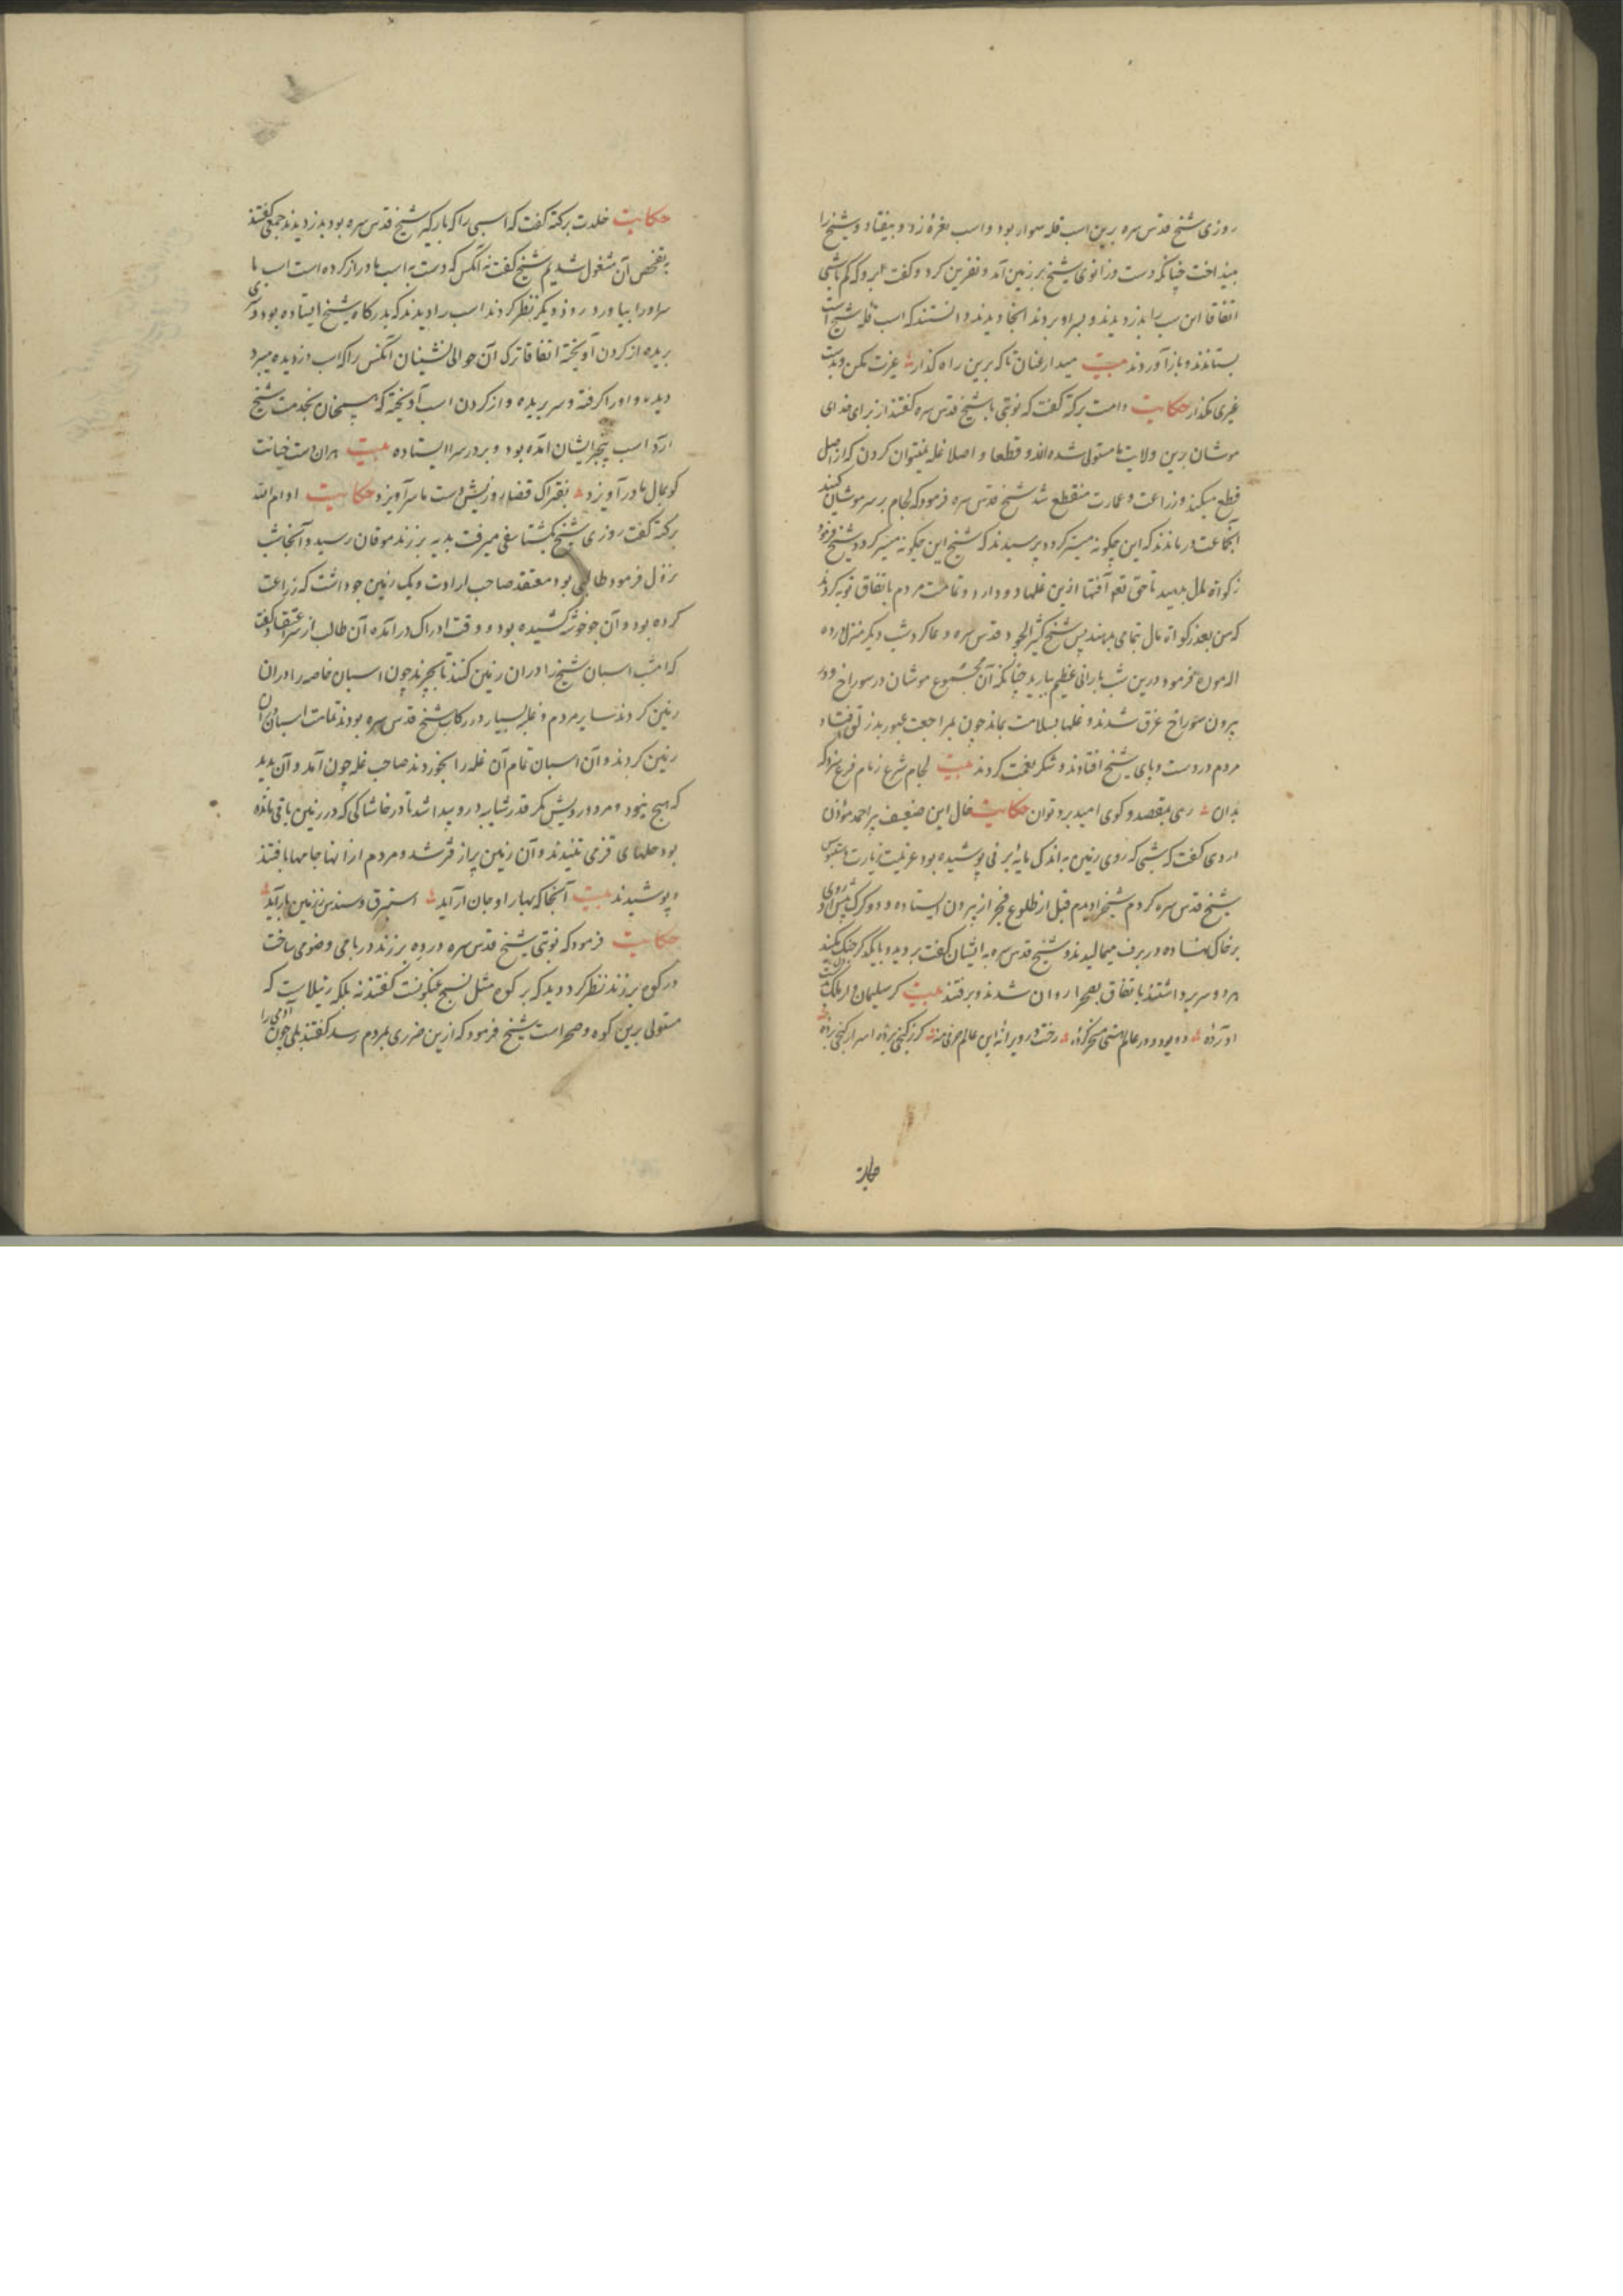 روزی شیخ قدس سره برین اسب قله سوار بود و اسب نعرهٔ زد و بیفتاد و شیخ را
بینداخت چنانکه دست و زانوی شیخ بر زمین آمد و نفرین کرد و گفت برو که کم باشی
اتفاقا این اسب را بدزدیدند و بسراو بردند انجا دیدند و دانستند که اسب قله شیخ است
بستانند و باز آوردند بیت میدار عنان تا که برین راه گذار غیرت مکن و بدست
غیری مگذار حکایت دامت برکته گفت که نوبتی با شیخ قدس سره گفتند از برای خدای
موشان برین ولایت ما مستولی شده‌اند و قطعا و اصلا غله نمیتوان کردن که از اصل
قطع میکنند و زراعت و عمارت منقطع شد شیخ قدس سره فرمود که لجام بر سر موشان کنید
آن جماعت درماندند که این چگونه میسر گردد پرسیدند که شیخ این چگونه میسر گردد شیخ فرمود
زکوة مال بدهید تا حق تع آفتها ازین غلها دور دارد و تمامت مردم باتفاق توبه کردند
که من بعد زکوة مال بتمامی بدهند پس شیخ قدس سره دعا کرد شب دیگر منزل
فرمود درین شب بارانی عظیم ببارید چنانکه آن مجموع موشان در سوراخ و در
بیرون سوراخ غرق شدند و غلها بسلامت بماند چون بمراجعت عبور افتاد
مردم در دست و پای شیخ افتادند و شکر نعمت کردند بیت لجام شرع زمام فرع
بدان ره بمقصد و کوی امید برد توان حکایت خال این ضعیف پیر احمد مؤذن
اردی گفت که شبی که روی زمین به اندک مایهٔ برفی پوشیده بود عزیمت زیارت
شیخ قدس سره کردم شیخ را دیدم قبل از طلوع فجر از بیرون ایستاده و دو گرک پیش او روی
بر خاک نهاده و در برف میمالیدند و شیخ قدس سره به ایشان گفت بروید و با یکدیگر جنگ مکنید
هر دو سر برداشتند باتفاق بصحرا روان شدند و برفتند بیت گر سلیمان وار ملک
حکایت
حکایت خلدت برکته گفت که اسبی را که بارگیر شیخ قدس سره بود بدزدیدند جمعی گفتند
بتفحص آن مشغول شدیم شیخ گفت نه آنکس که دست به اسب ما دراز کرده است اسب با
سر او را بیاورد روز دیگر نظر کردند اسب را دیدند که بدرگاه شیخ ایستاده بود و سری
بریده از گردن آویخته اتفاقا ترک آن حوالی نشینان آنکس را که اسب دزدیده میبرد
دیده و او را گرفته و سر بریده و از گردن اسب آویخته که همچنان بخدمت شیخ
آرد اسب بخیر ایشان آمده بود و بر در سرا ایستاده بیت هر آن دست خیانت
کو بمال ما در آویزد بفتراک قضا روزیش دست ما سر آویزد حکایت ادام الله
برکته گفت روزی شیخ بگشتاسفی میرفت بدیه برزند موقان رسید و آنجا شب
نزول فرمود طالبی بود معتقد صاحب ارادت و یک زمین جو داشت که زراعت
کرده بود و آن جو خوشه کشیده بود و وقت ادراک درآمده آن طالب از سر اعتقاد گفت
که امشب اسبان شیخ را در آن زمین کنند تا بچرند چون اسبان خاصه را در آن
زمین کردند سایر مردم و غلبهٔ بسیار در رکاب شیخ قدس سره بودند تمامت اسبان در آن
زمین کردند و آن اسبان تمام آن غله را بخوردند صاحب غله چون آمد و آن بدید
که هیچ نبود و مرد درویش مگر قدر شایبه درو پیدا شد تا در خاشاکی که در زمین باقی مانده
بود حلهای قزمی تنیدند و آن زمین پر از قز شد و مردم از آنها جامها بافتند
و پوشیدند بیت آنجا که بهار او جان آرآید استبرق و سندس ز زمین بار آید
حکایت فرمود که نوبتی شیخ قدس سره در ده برزند در بامی وضو می ساخت
در کوه برزند نظر کرد دید که بر کوه مثل نسج عنکبوت گفتند نه بلکه رتیلاست که
مستولی برین کوه و صحراست شیخ فرمود که ازین ضرری بمردم رسد گفتند بلی چون آدمی را